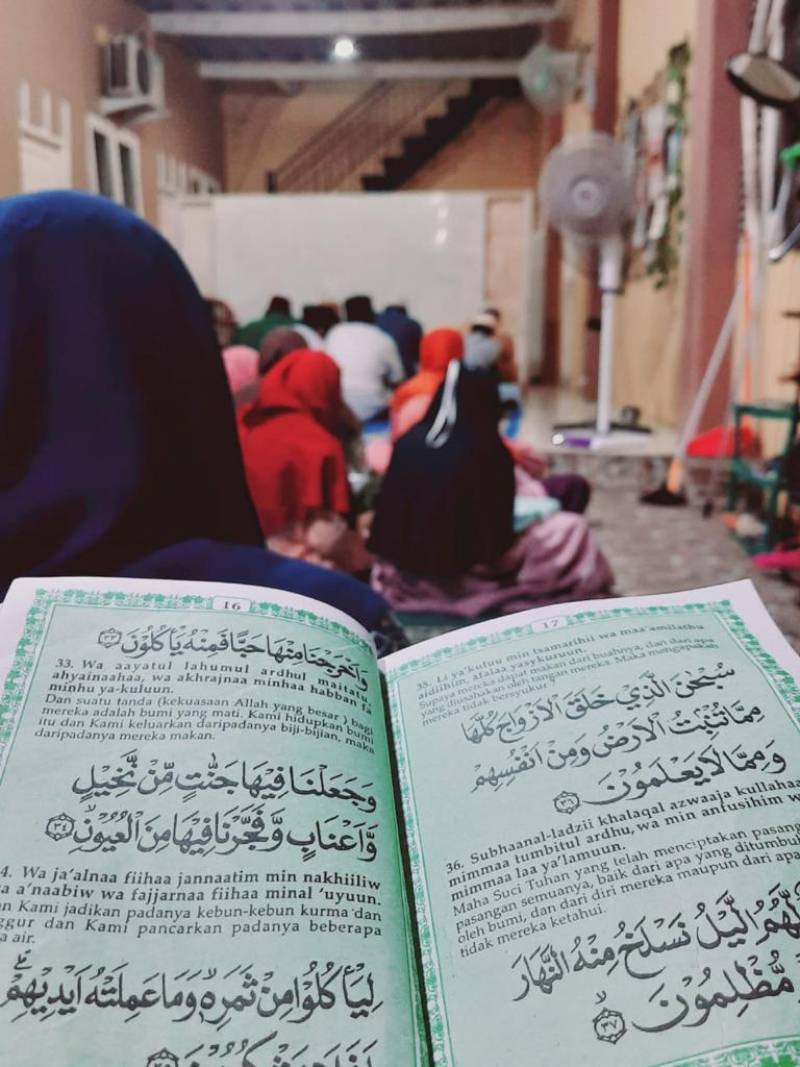 16
وَاَخْرَجْنَا مِنْهَا حَبًّا فَمِنْهُ يَأْكُلُوْنَ ٣٣
33. Wa aayatul lahumul ardhul maitatu
ahyainaahaa, wa akhrajnaa minhaa habban fa
minhu ya-kuluun.
Dan suatu tanda (kekuasaan Allah yang besar) bagi
mereka adalah bumi yang mati. Kami hidupkan bumi
itu dan Kami keluarkan daripadanya biji-bijian, maka
daripadanya mereka makan.
وَجَعَلْنَا فِيْهَا جَنّٰتٍ مِّنْ نَّخِيْلٍ
وَّاَعْنَابٍ وَّفَجَّرْنَا فِيْهَا مِنَ الْعُيُوْنِ ٣٤
4. Wa ja'alnaa fiihaa jannaatim min nakhiiliw
a a'naabiw wa fajjarnaa fiihaa minal 'uyuun.
n Kami jadikan padanya kebun-kebun kurma dan
ggur dan Kami pancarkan padanya beberapa
a air.
لِيَأْكُلُوْا مِنْ ثَمَرِهٖ وَمَا عَمِلَتْهُ اَيْدِيْهِمْ
17
35. Li ya'kuluu min tsamarihii wa maa 'amilathu
aidiihim, afalaa yasykuruun.
Supaya mereka dapat makan dari buahnya, dan dari apa
yang diusahakan oleh tangan mereka. Maka mengapakah
mereka tidak bersyukur?
سُبْحٰنَ الَّذِيْ خَلَقَ الْاَزْوَاجَ كُلَّهَا
مِمَّا تُنْۢبِتُ الْاَرْضُ وَمِنْ اَنْفُسِهِمْ
وَمِمَّا لَا يَعْلَمُوْنَ ٣٦
36. Subhaanal-ladzii khalaqal azwaaja kullahaa
mimmaa tumbitul ardhu, wa min anfusihim w
mimmaa laa ya'lamuun.
Maha Suci Tuhan yang telah menciptakan pasang
pasangan semuanya, baik dari apa yang ditumbuh
oleh bumi, dan dari diri mereka maupun dari apa
tidak mereka ketahui.
لَّهُمُ الَّيْلُ نَسْلَخُ مِنْهُ النَّهَارَ
مُّظْلِمُوْنَ ٣٧